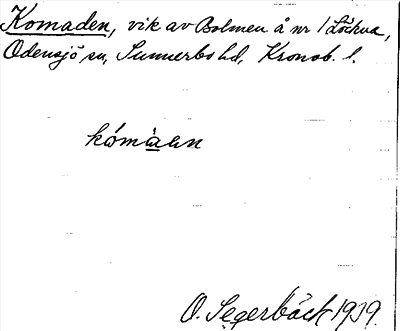 Komaden, vik av Bolmen å nr 1 Löckna,
Odensjö sn, Sunnerbo hd, Kronob. l.
kómàɑn
O. Segerbäck 1939